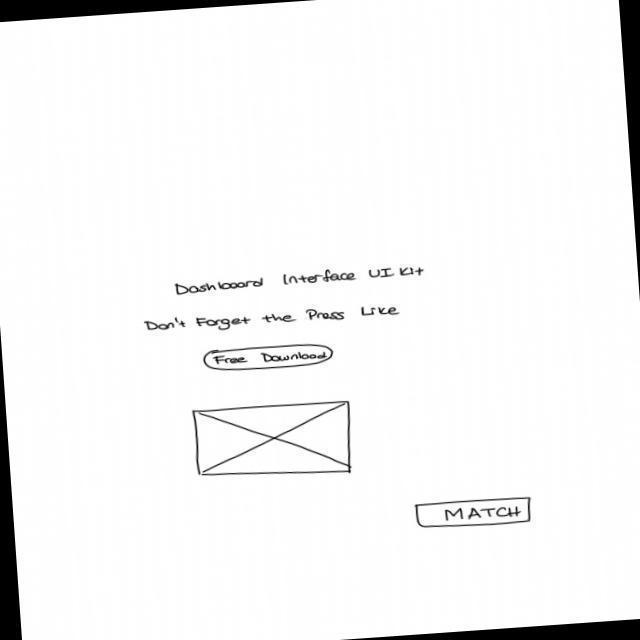 Dashboard Interface UI Kit
Don't Forget the Press Like
Free Download
MATCH